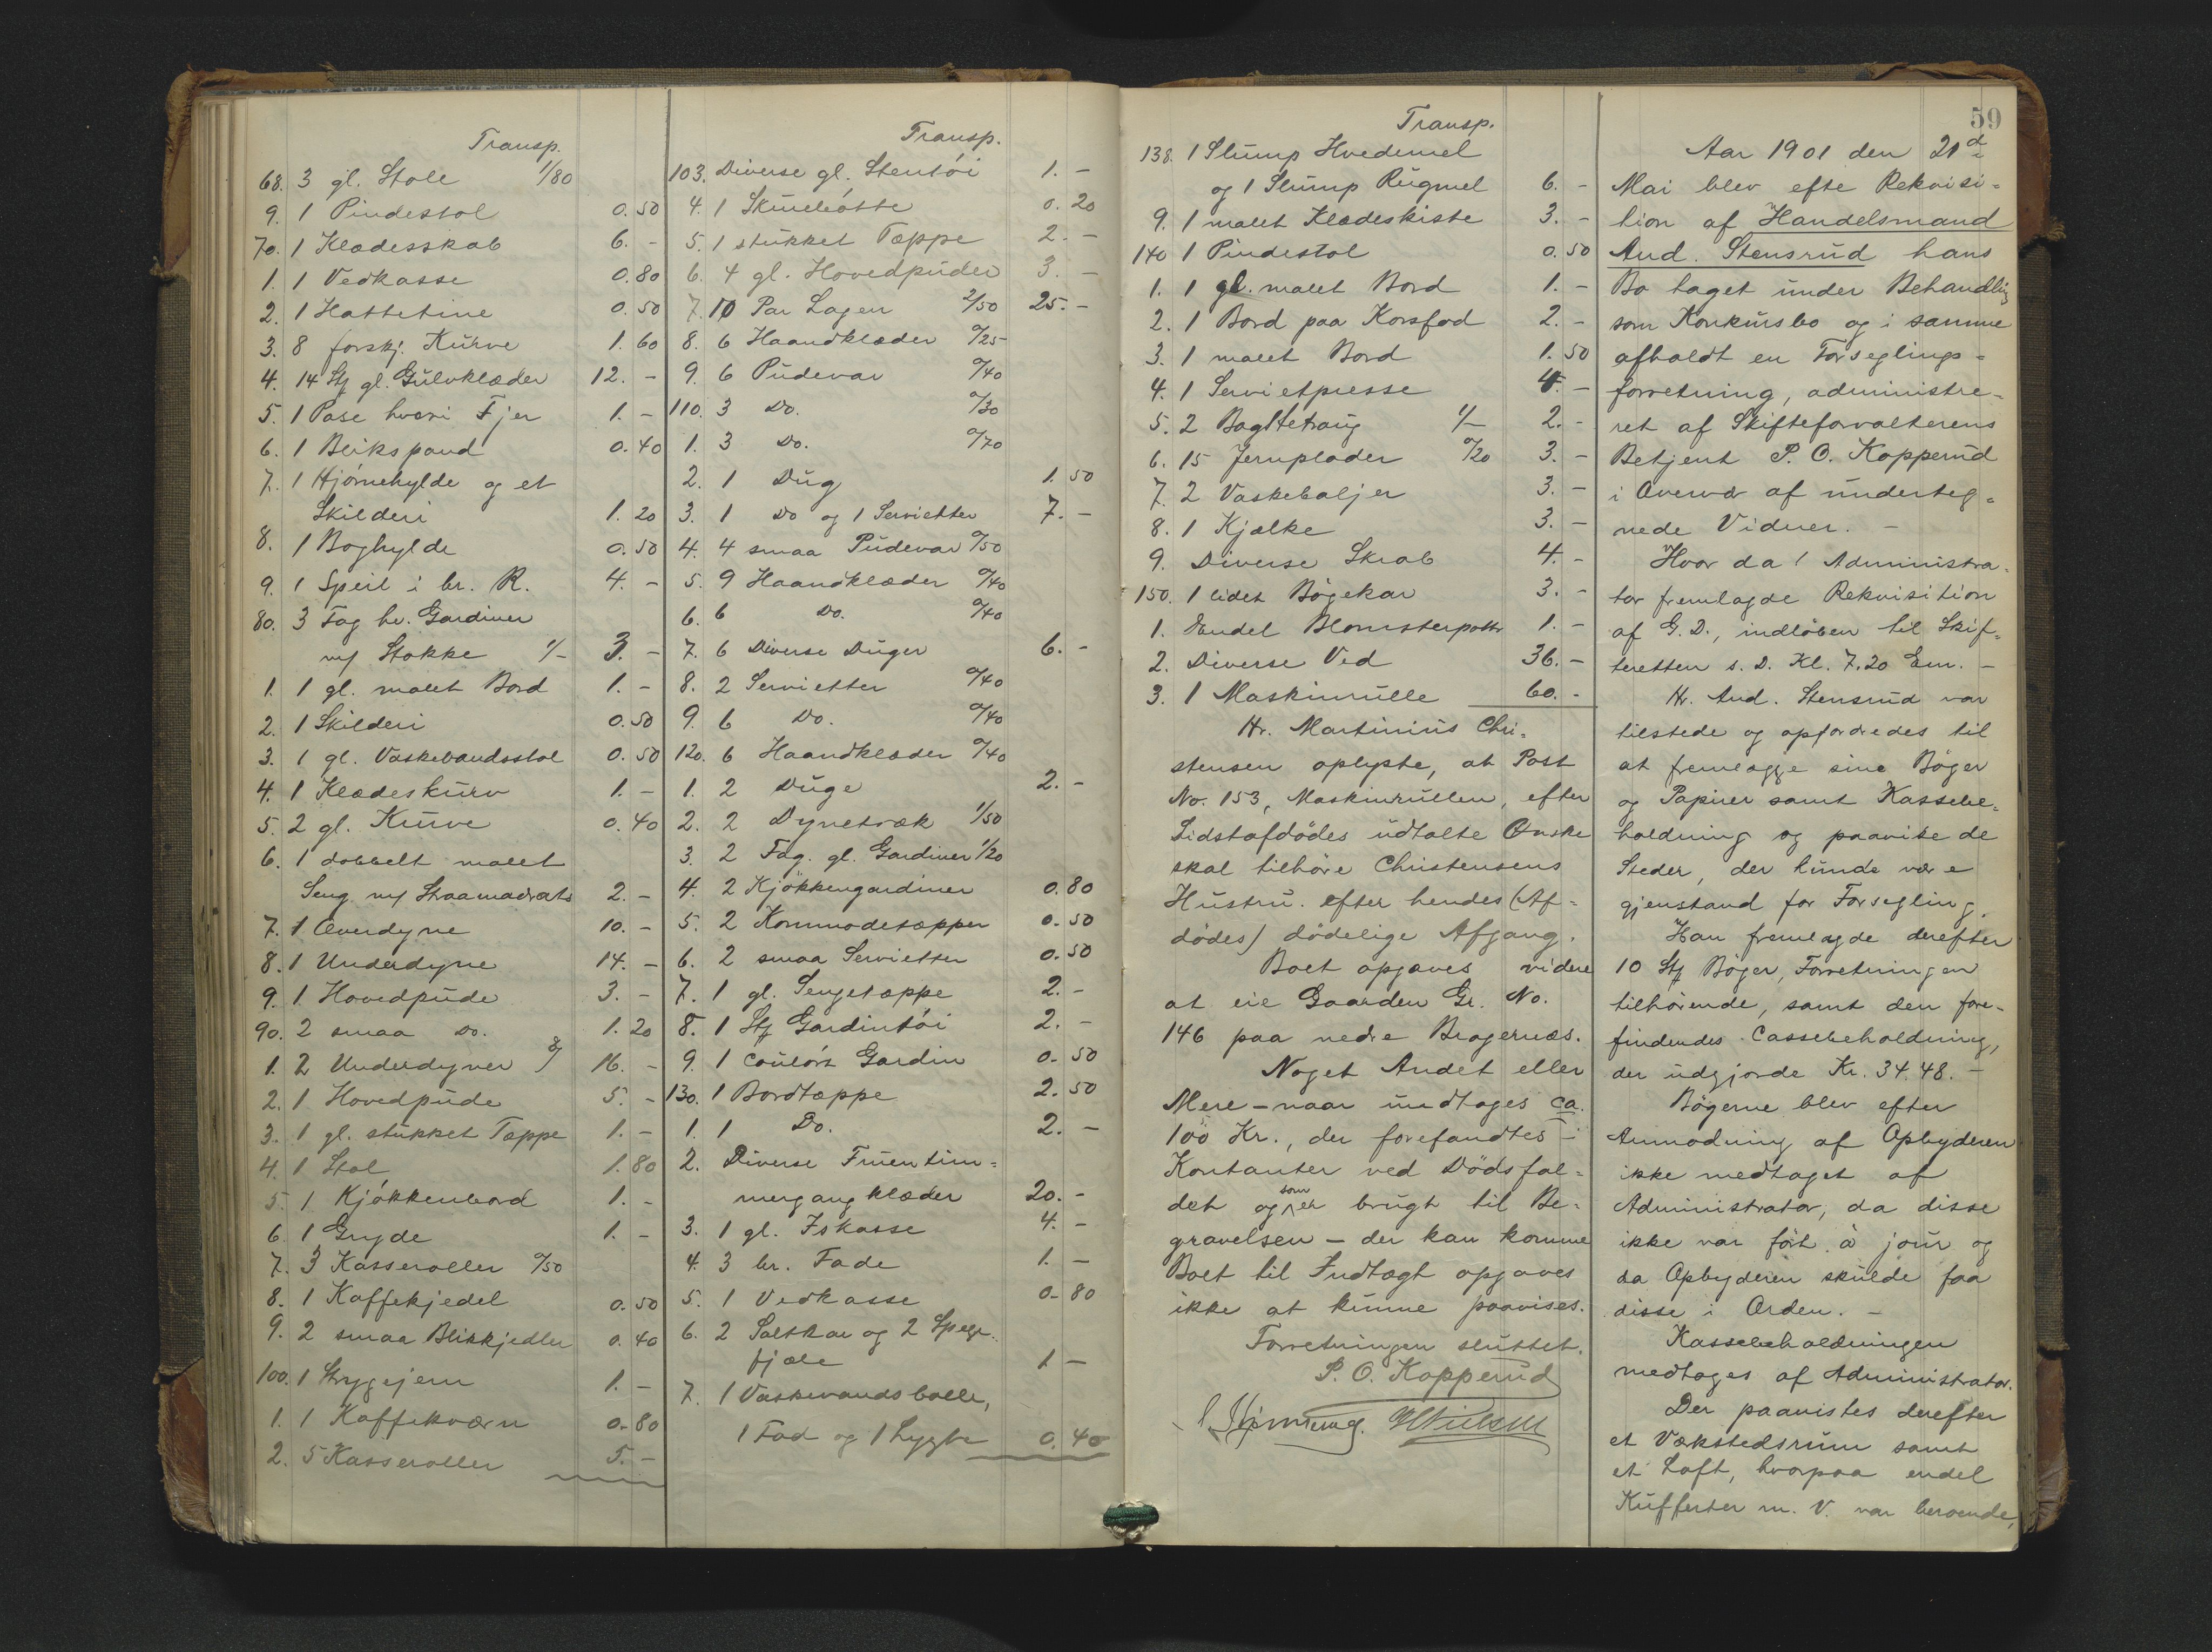 Transp.
68. 3 gl. Stole 1/80
9. 1 Pindestol 0.50
70. 1 Klædesskab 6. -
1. 1 Vedkasse 0.80
2. 1 Hattetine 0.50
3. 8 forskj. Kurve 1.60
4. 14 Stk gl. Gulvklæder 12. -
5. 1 Pose hvori Fjer 1. -
6. 1 Blikspand 0.40
7. 1 Hjørnehylde og et
Skilderi 1.20
8. 1 Boghylde 0.50
9. 1 Speil i br. R. 4. -
80. 3 Fag hv. Gardiner
m/ Stokke 1/- 3. -
1. 1 gl. malet Bord 1. -
2. 1 Skilderi 0.50
3. 1 gl. Vaskevandsstol 0.50
4. 1 Klædeskurv 1. -
5. 2 gl. Kurve 0.40
6. 1 dobbelt malet
Seng m/ Straamadrats 2. -
7. 1 Overdyne 10. -
8. 1 Underdyne 14. -
9. 1 Hovedpude 3. -
90. 2 smaa Do. 1.20
1. 2 Underdyner 8/ 16. -
2. 1 Hovedpude 5. -
3. 1 gl. stukket Tæppe 1. -
4. 1 Stol 1.80
5. 1 Kjøkkenbord 1. -
6. 1 Gryde 1. -
7. 3 Kasseroller 0/50
8. 1 Kaffekjedel 0.50
9. 2 smaa Blikkjedler 0.40
100. 1 Strygejern 1. -
1. 1 Kaffekværn 0.80
2. 5 Kasseroller 5. -
Transp.
103. Diverse gl. Stentøi 1. -
4. 1 0.20
5. 1 stukket Tæppe 2. -
6. 4 gl. Hovedpuder 3. -
7. 10 Par Lagen 2/50 25. -
8. 6 Haandklæder 0/25
9. 6 Pudevar 0/40
110. 3 Do. 0/30
1. 3 Do. 0/70
2. 1 Dug 1.50
3. 1 Do og 1 Servietter 7. -
4. 4 smaa Pudevar 0/50
5. 9 Haandklæder 0/40
6. 6 Do. 0/40
7. 6 Diverse Duger 6. -
8. 2 Servietter 0/40
9. 6 Do. 0/40
120. 6 Haandklæder 0/40
1. 2 Duge 2. -
2. 2 Dynetræk 1/50
3. 2 Fag. gl. Gardiner 1/20
4. 2 Kjøkkengardiner 0.80
5. 2 Kommodetæpper 0.50
6. 2 smaa Servietter 0.50
7. 1 gl. Sengetæppe 2. -
8. 1 Stk Gardintøi 2. -
9. 1 coulørt Gardin 0.50
130. 1 Bordtæppe 2.50
1. 1 Do. 2. -
2. Diverse Fruentim-
mergangklæder 20. -
3. 1 gl. Iskasse 4. -
4. 3 br. Fade 1. -
5. 1 Vedkasse 0.80
6. 2 Saltkar og 2
fjæle 1 -
7. 1 Vaskevandsbolle,
1 Fad og 1 Lygte 0.40
Transp.
138. 1 Slump Hvedemel
og 1 Slump Rugmel 6. -
9. 1 malet Klædeskiste 3. -
140 1 Pindestol 0.50
1. 1 gl. malet Bord 1. -
2. 1 Bord paa Korsfod 2. -
3. 1 malet Bord 1.50
4. 1 Servietpresse 4. -
5. 2 Bagttetraug 1/- 2. -
6. 15 Jernplader 0/20 3. -
7. 2 Vaskebaljer 3. -
8. 1 Kjælke 3. -
9. Diverse Skrab 4. -
150. 1 lidet Bøgekar 3. -
1. Endel Blomsterpotter 1. -
2. Diverse Ved 36. -
3. 1 Maskinrulle 60. -
Hr. Martinius Chri-
stensen oplyste, at Post
No. 153, Maskinrullen, efter
Sidstafdødes udtalte Ønske
skal tilhøre Christensens
Hustru. efter hendes (Af-
dødes) dødelige Afgang.
Boet opgaves videre
at eie Gaarden Gr. No.
146 paa nedre Bragernæs.
Noget Andet eller
Mere - naar undtages ca.
100 Kr., der forefandtes i
Kontanter ved Dødsfal-
det og som er brugt til Be-
gravelsen - der kan komme
Boet til Indtægt opgaves
ikke at kunne paavises.
Forretningen sluttet.
P. O. Kopperud
59
Aar 1901 den 21de
Mai blev efte Rekvisi-
tion af Handelsmand
And. Stensrud hans
Bo taget under Behandling
som Konkursbo og i samme
afholdt en Forseglings-
forretning, administre-
ret af Skifteforvalterens
Betjent P. O. Kopperud
i Overvær af underteg-
nede Vidner. -
Hvor da! Administra-
tor fremlagde Rekvisition
af G. D., indløben til Skif-
teretten s. D. Kl. 7.20 Em. -
Hr. And. Stensrud var
tilstede og opfordredes til
at fremlægge sine Bøger
og Papirer samt Kassebe-
holdning og paavise de
Steder, der kunde være
gjenstand for Forsegling.
Han fremlagde derefter
10 Stk Bøger, Forretningen
tilhørende, samt den fore-
findendes Cassebeholdning,
der udgjorde Kr. 34.48. -
Bøgerne blev efter
Anmodning af Opbyderen
ikke medtaget af
Administrator, da disse
ikke var ført à jour og
da Opbyderen skulde faa
disse i Orden. -
Kassebeholdningen
medtoges af Administrator.
Der paavistes derefter
et Værkstedsrum samt
et Loft, hvorpaa endel
Kufferter m. V. var beroende,